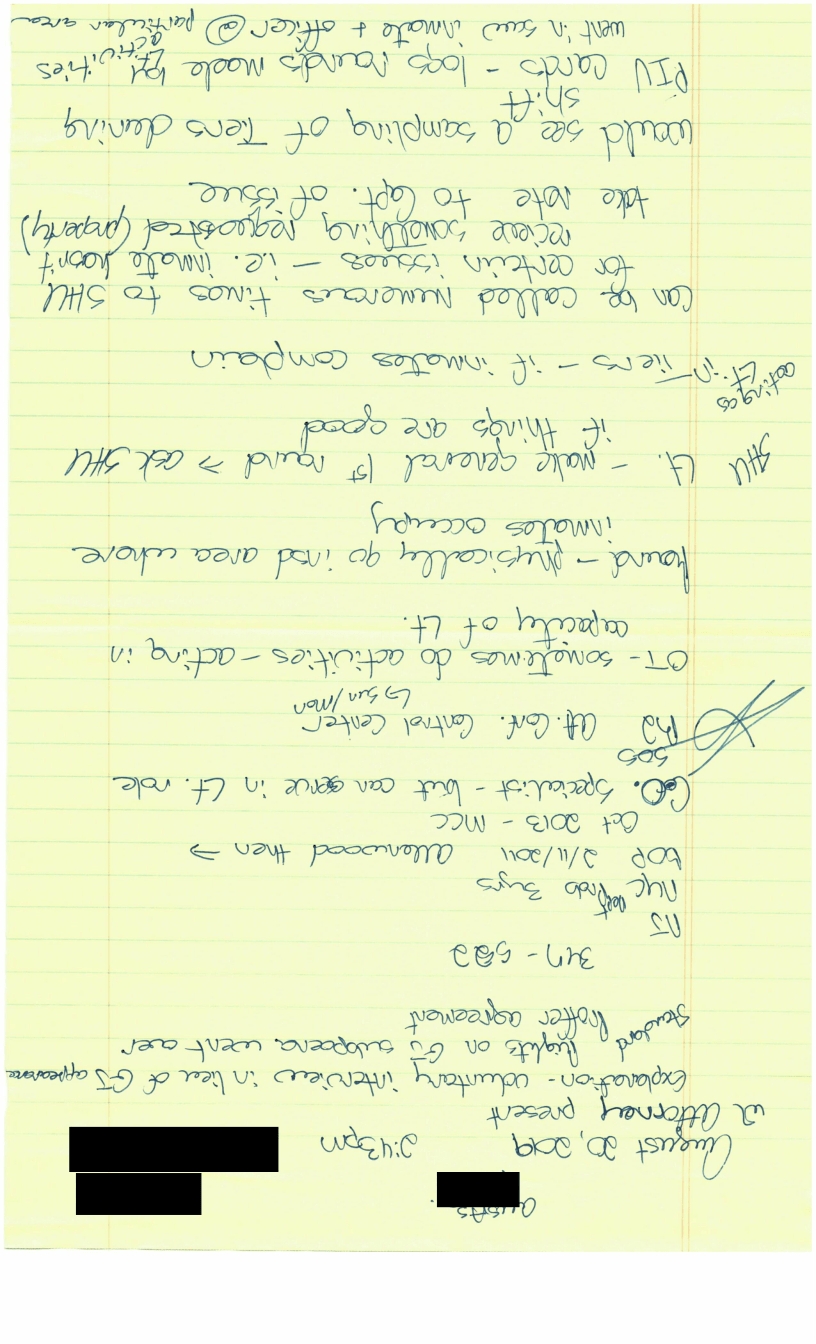 August 20, 2019 2:43pm
w Attorney present
Explanation - voluntary interview in lieu of GJ appearance
Rights on GJ subpoena went over
Standard Proffer agreement
347 - 522
NJ
NYC Dept Prob 3yrs
BOP 2/11/2011 Allenwood then →
Oct 2013 - MCC
Specialist - but can serve in Lt. role
SOS
Control Center
↳ Sun/Mon
OT - sometimes do activities - acting in
capacity of Lt.
Round - physically go insd area where
inmates occupy
SHU Lt. - make general 1st round → ask SHU
if things are good
acting as Lt. in Tiers - if inmates complain
Can be called numerous times to SHU
for certain issues - i.e. inmate hasn't
recieve something requested (property)
take note to Capt. of issue
would see a sampling of Tiers during
shift
PIU cards - logs rounds made by Lt activities
went in saw inmate + officer @ particular area